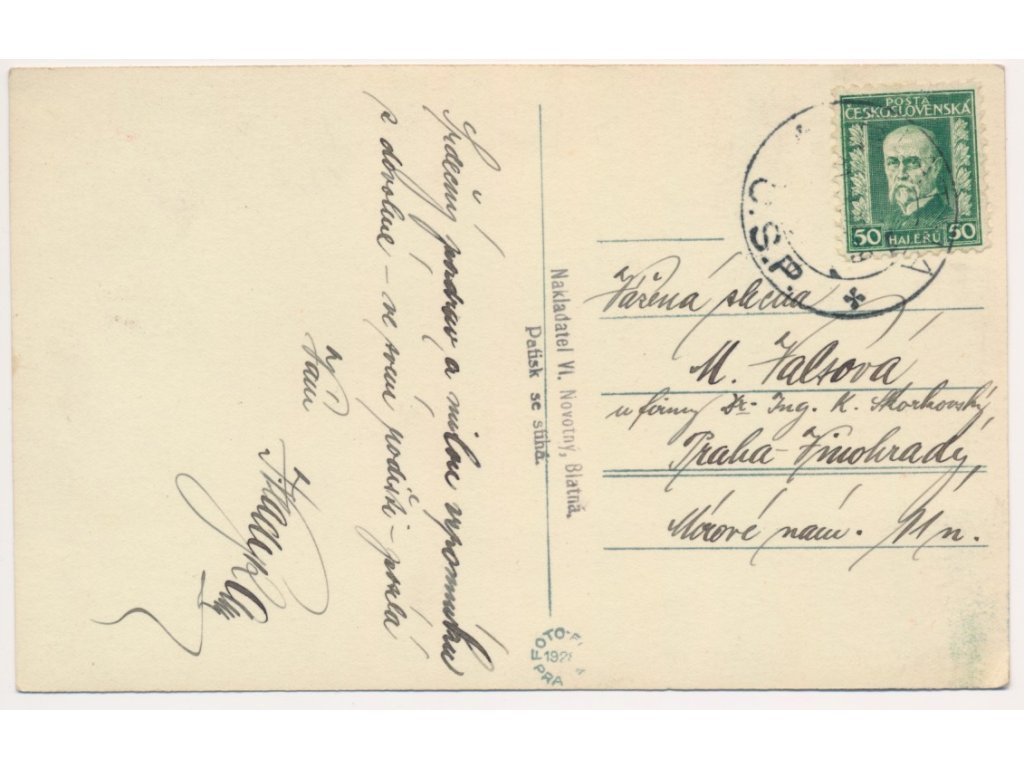 Srdečný pozdrav a milou vzpomínku
z dovolené – ve svém podišti – posílá
Vám
Nakladatel Vl. Novotný, Blatná.
Patisk se stíhá.
FOTO-F
192
PRA
POŠTA
ČESKOSLOVENSKÁ
50 HALÉŘŮ 50
Č.S.P.
Vážená slečna
M. Valsová
u firmy Dr. Ing. K. Skorkovský,
Praha-Vinohrady,
Mírové nám.